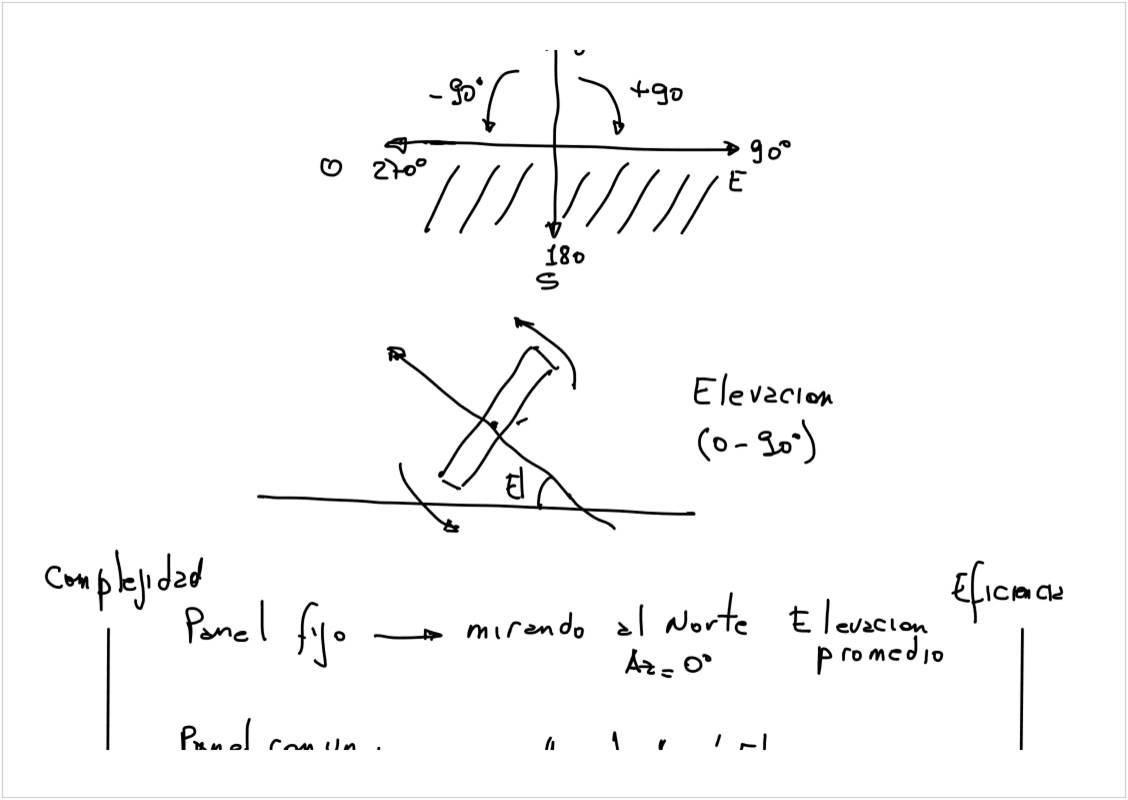 -90° +90
O 270° 90°
E
180
S
Elevacion
(0-90°)
El
Complejidad Eficiencia
Panel fijo → mirando al Norte Elevacion
Az=0° promedio
Panel con un